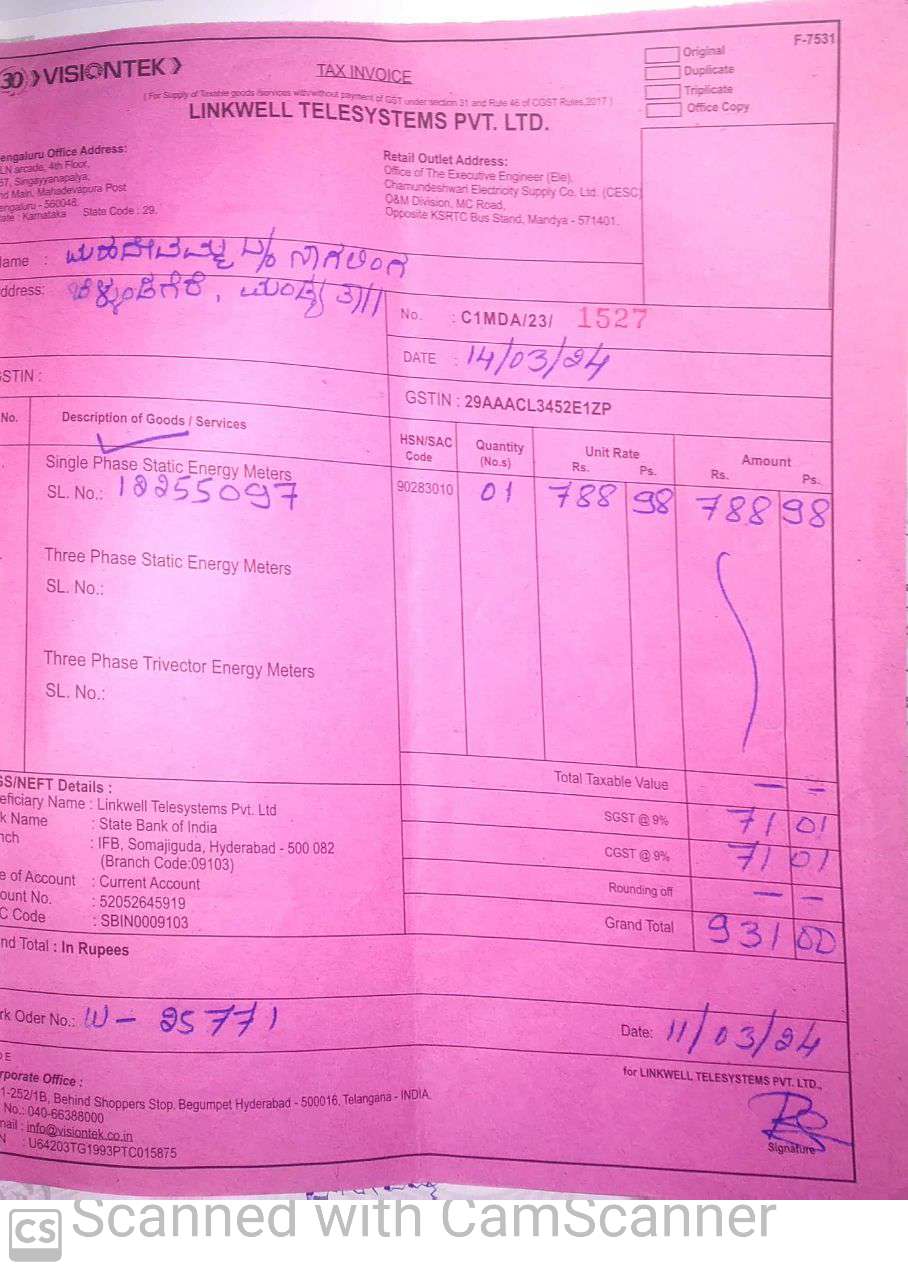 30 VISIONTEK
TAX INVOICE
F-7531
Original
Duplicate
Triplicate
Office Copy
( For Supply of Taxable goods /services with/without payment of GST under section 31 and Rule 46 of CGST Rules,2017 )
LINKWELL TELESYSTEMS PVT. LTD.
engaluru Office Address:
LN arcade, 4th Floor,
57, Singayyanapalya,
nd Main, Mahadevapura Post
engaluru - 560048.
ate : Karnataka State Code : 29.
Retail Outlet Address:
Office of The Executive Engineer (Ele),
Chamundeshwari Electricity Supply Co. Ltd. (CESC)
O&M Division, MC Road,
Opposite KSRTC Bus Stand, Mandya - 571401.
ame : ಮಹದೇವಮ್ಮ ನಾಗಲಿಂಗ
ddress: ಮಂಡ್ಯ
No. : C1MDA/23/ 1527
DATE : 14/03/24
GSTIN :
GSTIN : 29AAACL3452E1ZP
No. Description of Goods / Services HSN/SAC Code Quantity (No.s) Unit Rate Rs. Ps. Amount Rs. Ps.
Single Phase Static Energy Meters
SL. No.: 18255097 90283010 01 788 98 788 98
Three Phase Static Energy Meters
SL. No.:
Three Phase Trivector Energy Meters
SL. No.:
Total Taxable Value — –
SGST @ 9% 71 01
CGST @ 9% 71 01
Rounding off — –
Grand Total 931 00
GS/NEFT Details :
eficiary Name : Linkwell Telesystems Pvt. Ltd
k Name : State Bank of India
nch : IFB, Somajiguda, Hyderabad - 500 082
(Branch Code:09103)
e of Account : Current Account
ount No. : 52052645919
C Code : SBIN0009103
nd Total : In Rupees
rk Oder No.: W - 25771
Date: 11/03/24
for LINKWELL TELESYSTEMS PVT. LTD.,
DE
rporate Office :
1-252/1B, Behind Shoppers Stop, Begumpet Hyderabad - 500016, Telangana - INDIA.
No.: 040-66388000
mail : info@visiontek.co.in
N : U64203TG1993PTC015875
Signature
CS Scanned with CamScanner